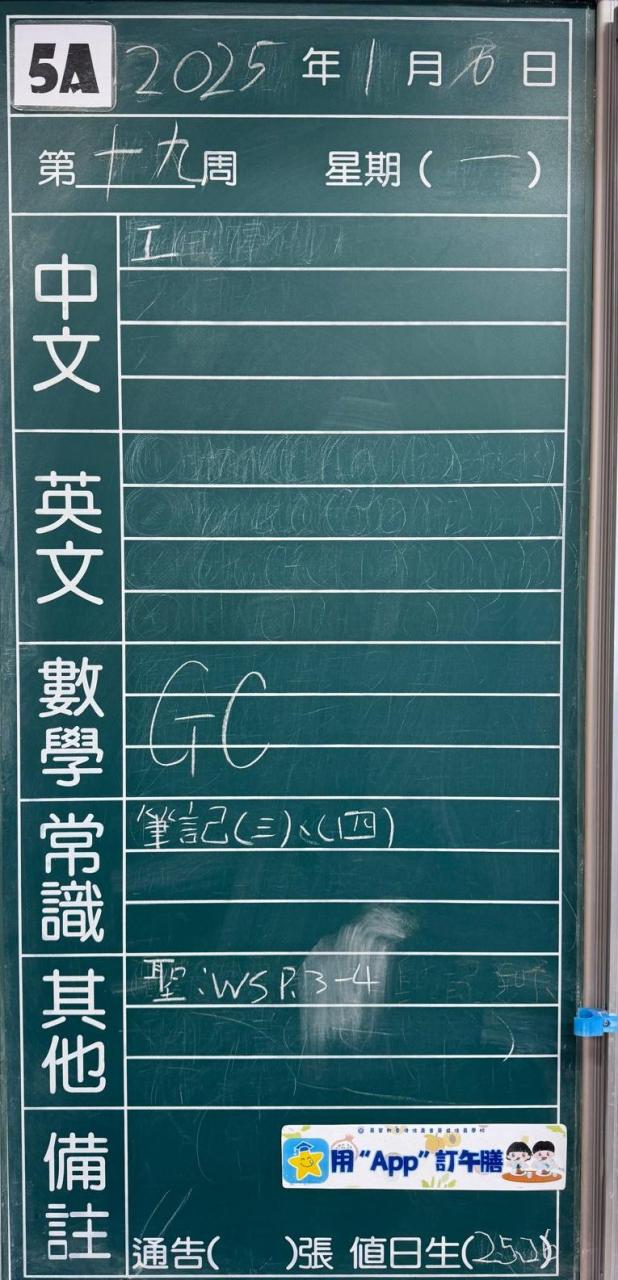 5A 2025 年 1 月 6 日
第十九周 星期(一)
中文
工
英文
數學
GC
常識
筆記(三)、(四)
其他
聖:WS P.3-4
備註
用“App”訂午膳
通告( )張 值日生(25,26)